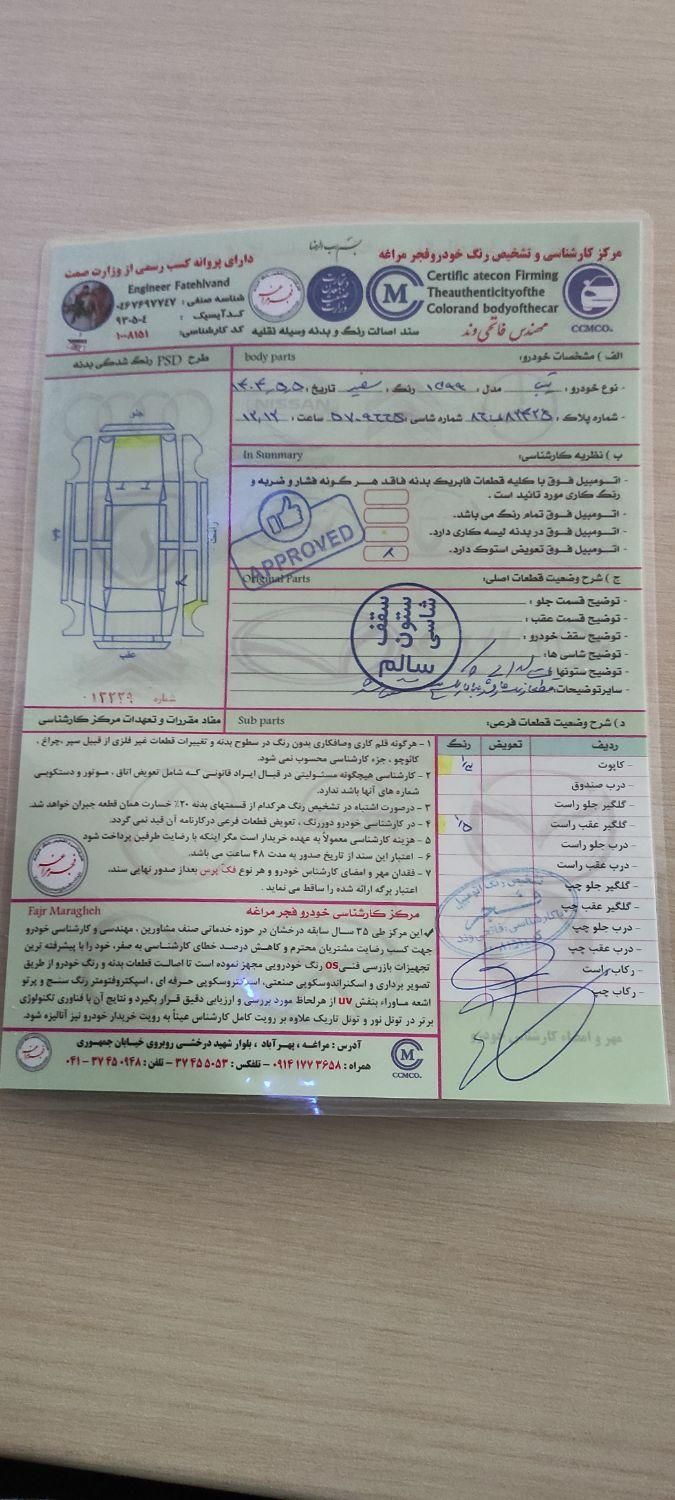 مرکز کارشناسی و تشخیص رنگ خودرو فجر مراغه
دارای پروانه کسب رسمی از وزارت صمت
Certific atecon Firming
Theauthenticityofthe
Colorand bodyofthecar
CCMCO.
مهندس فاتحی وند
سند اصالت رنگ و بدنه وسیله نقلیه
Engineer Fatehivand
شناسه صنفی : ۰۴۶۷۶۹۷۷۴۷
کدآیسیک : ۹۳۰۵۰۴
کد کارشناسی: ۱۰۰۸۱۵۱
الف ) مشخصات خودرو:
body parts
طرح PSD رنگ شدگی بدنه
- نوع خودرو : تیبا مدل : ۱۳۹۹ رنگ : سفید تاریخ :
- شماره پلاک : شماره شاسی : ساعت : ۱۲,۱۲
ب ) نظریه کارشناسی:
In Summary
- اتومبیل فوق با کلیه قطعات فابریک بدنه فاقد هر گونه فشار و ضربه و
رنگ کاری مورد تائید است .
- اتومبیل فوق تمام رنگ می باشد.
- اتومبیل فوق در بدنه لیسه کاری دارد.
- اتومبیل فوق تعویض استوک دارد.
APPROVED
ج ) شرح وضعیت قطعات اصلی:
Original Parts
- توضیح قسمت جلو :
- توضیح قسمت عقب :
- توضیح سقف خودرو :
- توضیح شاسی ها:
- توضیح ستونها:
- سایرتوضیحات:
سقف
ستون
شاسی
سالم
جلو
راست
چپ
عقب
شماره ۰۱۲۲۲۹
د ) شرح وضعیت قطعات فرعی:
Sub parts
مفاد مقررات و تعهدات مرکز کارشناسی
ردیف تعویض رنگ
- کاپوت
- درب صندوق
- گلگیر جلو راست
- گلگیر عقب راست
- درب جلو راست
- درب عقب راست
- گلگیر جلو چپ
- گلگیر عقب چپ
- درب جلو چپ
- درب عقب چپ
- رکاب راست
- رکاب چپ
مهر و امضاء کارشناسی خودرو
تشخیص رنگ اتومبیل
فجر
۱ - هرگونه قلم کاری وصافکاری بدون رنگ در سطوح بدنه و تغییرات قطعات غیر فلزی از قبیل سپر ،چراغ ،
کائوچو ، جزء کارشناسی محسوب نمی شود.
۲ - کارشناسی هیچگونه مسئولیتی در قبال ایراد قانونی که شامل تعویض اتاق ، موتور و دستکوبی
شماره های آنها باشد ندارد.
۳ - درصورت اشتباه در تشخیص رنگ هرکدام از قسمتهای بدنه ۲۰٪ خسارت همان قطعه جبران خواهد شد.
۴ - در کارشناسی خودرو دوررنگ ، تعویض قطعات فرعی درکارنامه آن قید نمی گردد.
۵ - هزینه کارشناسی معمولاً به عهده خریدار است مگر اینکه با رضایت طرفین پرداخت شود
۶ - اعتبار این سند از تاریخ صدور به مدت ۴۸ ساعت می باشد.
۷ - فقدان مهر و امضای کارشناس خودرو و هر نوع فک پرس بعداز صدور نهایی سند،
اعتبار برگه ارائه شده را ساقط می نماید .
مرکز کارشناسی خودرو فجر مراغه
Fajr Maragheh
این مرکز طی ۳۵ سال سابقه درخشان در حوزه خدماتی صنف مشاورین ، مهندسی و کارشناسی خودرو
جهت کسب رضایت مشتریان محترم و کاهش درصد خطای کارشناسی به صفر، خود را با پیشرفته ترین
تجهیزات بازرسی فنیOS رنگ خودرویی مجهز نموده است تا اصالت قطعات بدنه و رنگ خودرو از طریق
تصویر برداری و اسکنراندوسکوپی صنعتی، اسپکتروسکوپی حرفه ای ، اسپکتروفتومتر رنگ سنج و پرتو
اشعه ماوراء بنفش UV از هرلحاظ مورد بررسی و ارزیابی دقیق قرار بگیرد و نتایج آن با فناوری تکنولوژی
برتر در تونل نور و تونل تاریک علاوه بر رویت کامل کارشناس عیناً به رویت خریدار خودرو نیز آنالیزه شود.
آدرس : مراغه ، بهرآباد ، بلوار شهید درخشی روبروی خیابان جمهوری
همراه : ۰۹۱۴ ۱۷۷ ۳۶۵۸ - تلفکس : ۳۷ ۴۵ ۵۰۵۳ - تلفن : ۰۹۴۸ ۴۵ ۳۷ - ۰۴۱
CCMCO.